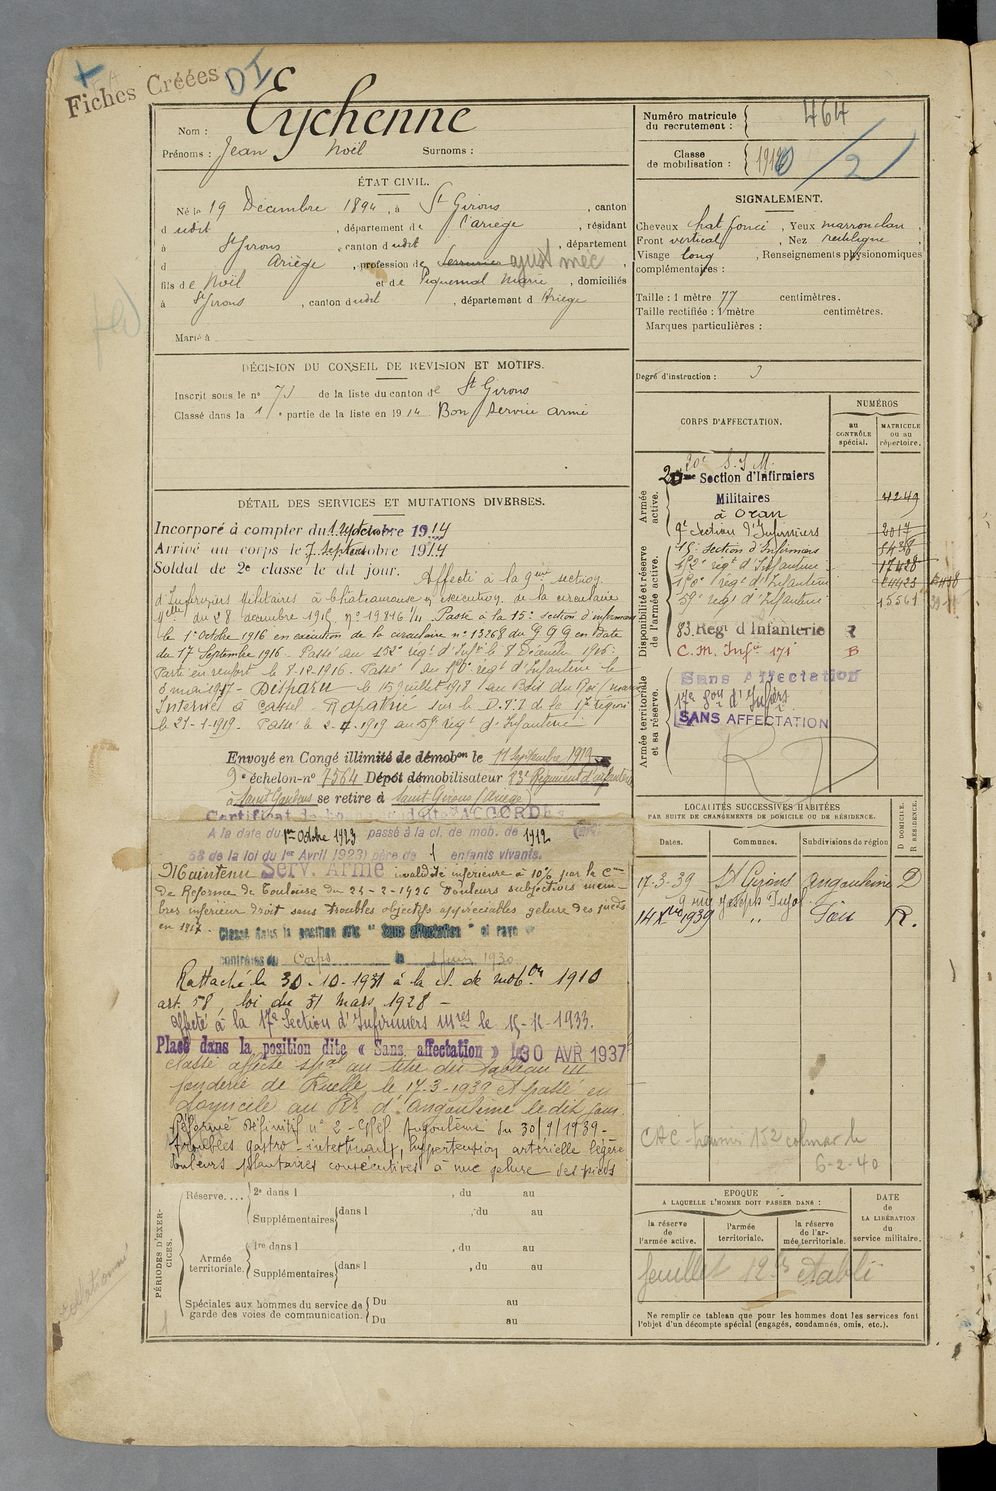 Fiches Créées
DI
Nom : Eychenne
Prénoms : Jean Noël Surnoms :
ÉTAT CIVIL.
Né le 19 Décembre 1894, à St Girons, canton
d udit, département de l'Ariège, résidant
à St Girons, canton d udit, département
d Ariège, profession de serrurier ajust mec,
fils de Noël et de Piquemal Marie, domiciliés
à St Girons, canton dudit, département d Ariège
Marié à
DÉCISION DU CONSEIL DE REVISION ET MOTIFS.
Inscrit sous le n° 73 de la liste du canton de St Girons
Classé dans la 1re partie de la liste en 1914 Bon service armé
DÉTAIL DES SERVICES ET MUTATIONS DIVERSES.
Incorporé à compter du 1 septembre 1914
Arrivé au corps le 7 septembre 1914
Soldat de 2e classe le dit jour. Affecté à la 9ème section
d'Infirmiers Militaires à Châteauroux en exécution de la circulaire
du 28 décembre 1915 n° 19816 Passé à la 15e section d'infirmiers
le 1er octobre 1916 en exécution de la circulaire n° 13268 du G Q G en date
du 17 Septembre 1916 - Passé au 152e régt d'Infrie le 8 Décembre 1916.
Parti en renfort le 8.12.1916. Passé au 170e régt d'Infanterie le
3 mai 1917 - Disparu le 15 juillet 1918 au Bois du Roi (marne)
Interné à Cassel - Rapatrié sur le D.T.I de la 17e région
le 21-1-1919. Passé le 2-4-1919 au 59 régt d'Infanterie
Envoyé en Congé illimité de démobon le 11 Septembre 1919
9e échelon - n° 7564 Dépôt démobilisateur 83e Régiment d'infanterie
à Saint Gaudens se retire à Saint Girons (Ariège)
Certificat de bonne conduite ACCORDÉ
A la date du 1er Octobre 1923 passé à la cl. de mob. de 1912 (art.
58 de la loi du 1er Avril 1923) père de 1 enfants vivants.
Maintenu Serv. Armé invalidité inférieure à 10% par la Con
de Réforme de Toulouse du 24-2-1926 Douleurs subjectives mem-
bres inférieur droit sans troubles objectifs appréciables gelure des pieds
en 1917. Classé dans la position dite " Sans affectation " et rayé
contrôles du Corps le 1 juin 1930
Rattaché le 30-10-1931 à la cl. de mobon 1910
art. 58, loi du 31 mars 1928 -
affecté à la 17e Section d'Infirmiers Mres le 15-11-1933.
Placé dans la position dite « Sans affectation » le 30 AVR 1937
Classé affecté spal au titre du tableau III
fonderie de Ruelle le 17-3-1939 et passé en
domicile au Rt d'Angoulême le dit jour
Réformé Définitif n° 2 - Angoulême du 30/9/1939 -
troubles gastro-intestinaux, hypertension artérielle légère
douleurs consécutives à une gelure des pieds
PÉRIODES D'EXERCICES.
Réserve.... 2e dans l , du au
Supplémentaires dans l , du au
Armée territoriale. 1re dans l , du au
Supplémentaires dans l , du au
Spéciales aux hommes du service de garde des voies de communication. Du au
Du au
Numéro matricule du recrutement : 464
Classe de mobilisation : 1910 /2
SIGNALEMENT.
Cheveux chat foncé, Yeux marron clair,
Front vertical, Nez rectiligne,
Visage long, Renseignements physionomiques
complémentaires :
Taille : 1 mètre 77 centimètres.
Taille rectifiée : 1 mètre centimètres.
Marques particulières :
Degré d'instruction : 3
CORPS D'AFFECTATION.
NUMÉROS
au CONTRÔLE spécial.
MATRICULE ou au répertoire.
Armée active.
20e S.I.M.
20ème Section d'Infirmiers
Militaires 4249
à Oran
9e Section d'Infirmiers 2017
Disponibilité et réserve de l'armée active.
15e section d'Infirmiers 5438
152e régt d'Infanterie 17428
170e régt d'Infanterie
59e régt d'Infanterie 15561
83. Régt d'Infanterie R
C.M. Infie 171 B
Armée territoriale et sa réserve.
Sans Affectation
17e Son d'Infirs
SANS AFFECTATION
RD
LOCALITÉS SUCCESSIVES HABITÉES
PAR SUITE DE CHANGEMENTS DE DOMICILE OU DE RÉSIDENCE.
Dates. Communes. Subdivisions de région D DOMICILE. R RÉSIDENCE.
17-3-39 St Girons Angoulême D
9 rue Joseph Pujol
14 Xbre 1939 " Foix R.
CAC 152 Colmar le
6-2-40
EPOQUE
A LAQUELLE L'HOMME DOIT PASSER DANS :
la réserve de l'armée active.
l'armée territoriale.
la réserve de l'armée territoriale.
DATE de LA LIBÉRATION du service militaire.
feuillet 12 bis établi
Ne remplir ce tableau que pour les hommes dont les services font
l'objet d'un décompte spécial (engagés, condamnés, omis, etc.).